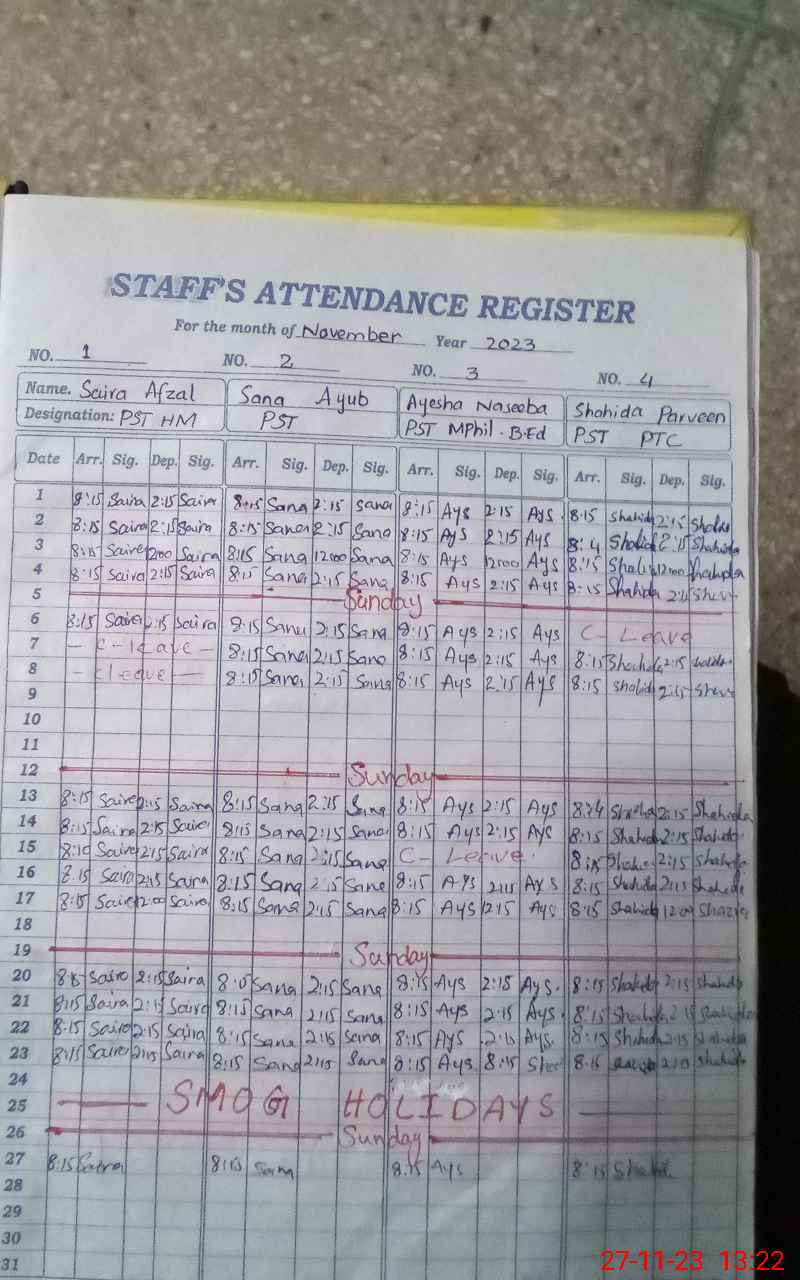 STAFF'S ATTENDANCE REGISTER
For the month of November Year 2023
NO. 1 NO. 2 NO. 3 NO. 4
Name. Saira Afzal Sana Ayub Ayesha Naseeba Shahida Parveen
Designation: PST HM PST PST MPhil. B.Ed PST PTC
Date Arr. Sig. Dep. Sig. Arr. Sig. Dep. Sig. Arr. Sig. Dep. Sig. Arr. Sig. Dep. Sig.
1 8:15 Saira 2:15 Saira 8:15 Sana 2:15 Sana 8:15 Ays 2:15 Ays. 8:15 Shahida 2:15
2 8:15 Saira 2:15 Saira 8:15 Sana 2:15 Sana 8:15 Ays 2:15 Ays 8:4 Shahida 2:15 Shahida
3 8:15 Saira 1200 Saira 8:15 Sana 1200 Sana 8:15 Ays 1200 Ays 8:15 1200 Shahida
4 8:15 Saira 2:15 Saira 8:15 Sana 2:15 Sana 8:15 Ays 2:15 Ays 8:15 Shahida
5 Sunday
6 8:15 Saira 2:15 Saira 8:15 Sana 2:15 Sana 8:15 Ays 2:15 Ays C- Leave
7 - C-Leave - 8:15 Sana 2:15 Sana 8:15 Ays 2:15 Ays 8:15 2:15
8 - C leave - 8:15 Sana 2:15 Sana 8:15 Ays 2:15 Ays 8:15 Shahid 2:15
9
10
11
12 Sunday
13 8:15 Saira 2:15 Saira 8:15 Sana 2:15 Sana 8:15 Ays 2:15 Ays 2:15 Shahida
14 8:15 Saira 2:15 Saira 8:15 Sana 2:15 Sana 8:15 Ays 2:15 Ays 8:15 Shahida 2:15 Shahida
15 8:10 Saira 2:15 Saira 8:15 Sana 2:15 Sana C- Leave. 8:15 2:15 Shahida
16 8:15 Saira 2:15 Saira 8:15 Sana 2:15 Sana 8:15 Ays 2:15 Ays 8:15 Shahida 2:15
17 8:15 Saira 1200 Saira 8:15 Sana 2:15 Sana 8:15 Ays 12:15 Ays 8:15 Shahida 1200
18
19 Sunday
20 8:15 Saira 2:15 Saira Sana 2:15 Sana 8:15 Ays 2:15 Ays. 8:15 Shahida 2:15 Shahida
21 8:15 Saira 2:15 Saira 8:15 Sana 2:15 Sana 8:15 Ays 2:15 Ays. 8:15 Shahida 2:15 Shahida
22 8:15 Saira 2:15 Saira 8:15 Sana 2:15 Sana 8:15 Ays 2:15 Ays. 8:15 Shahida 2:15 Shahida
23 8:15 Saira 2:15 Saira 8:15 Sana 2:15 Sana 8:15 Ays 8:15 2:15 Shahida
24
25 SMOG HOLIDAYS
26 Sunday
27 8:15 Saira 8:15 Sana 8:15 Ays 8:15
28
29
30
31
27-11-23 13:22